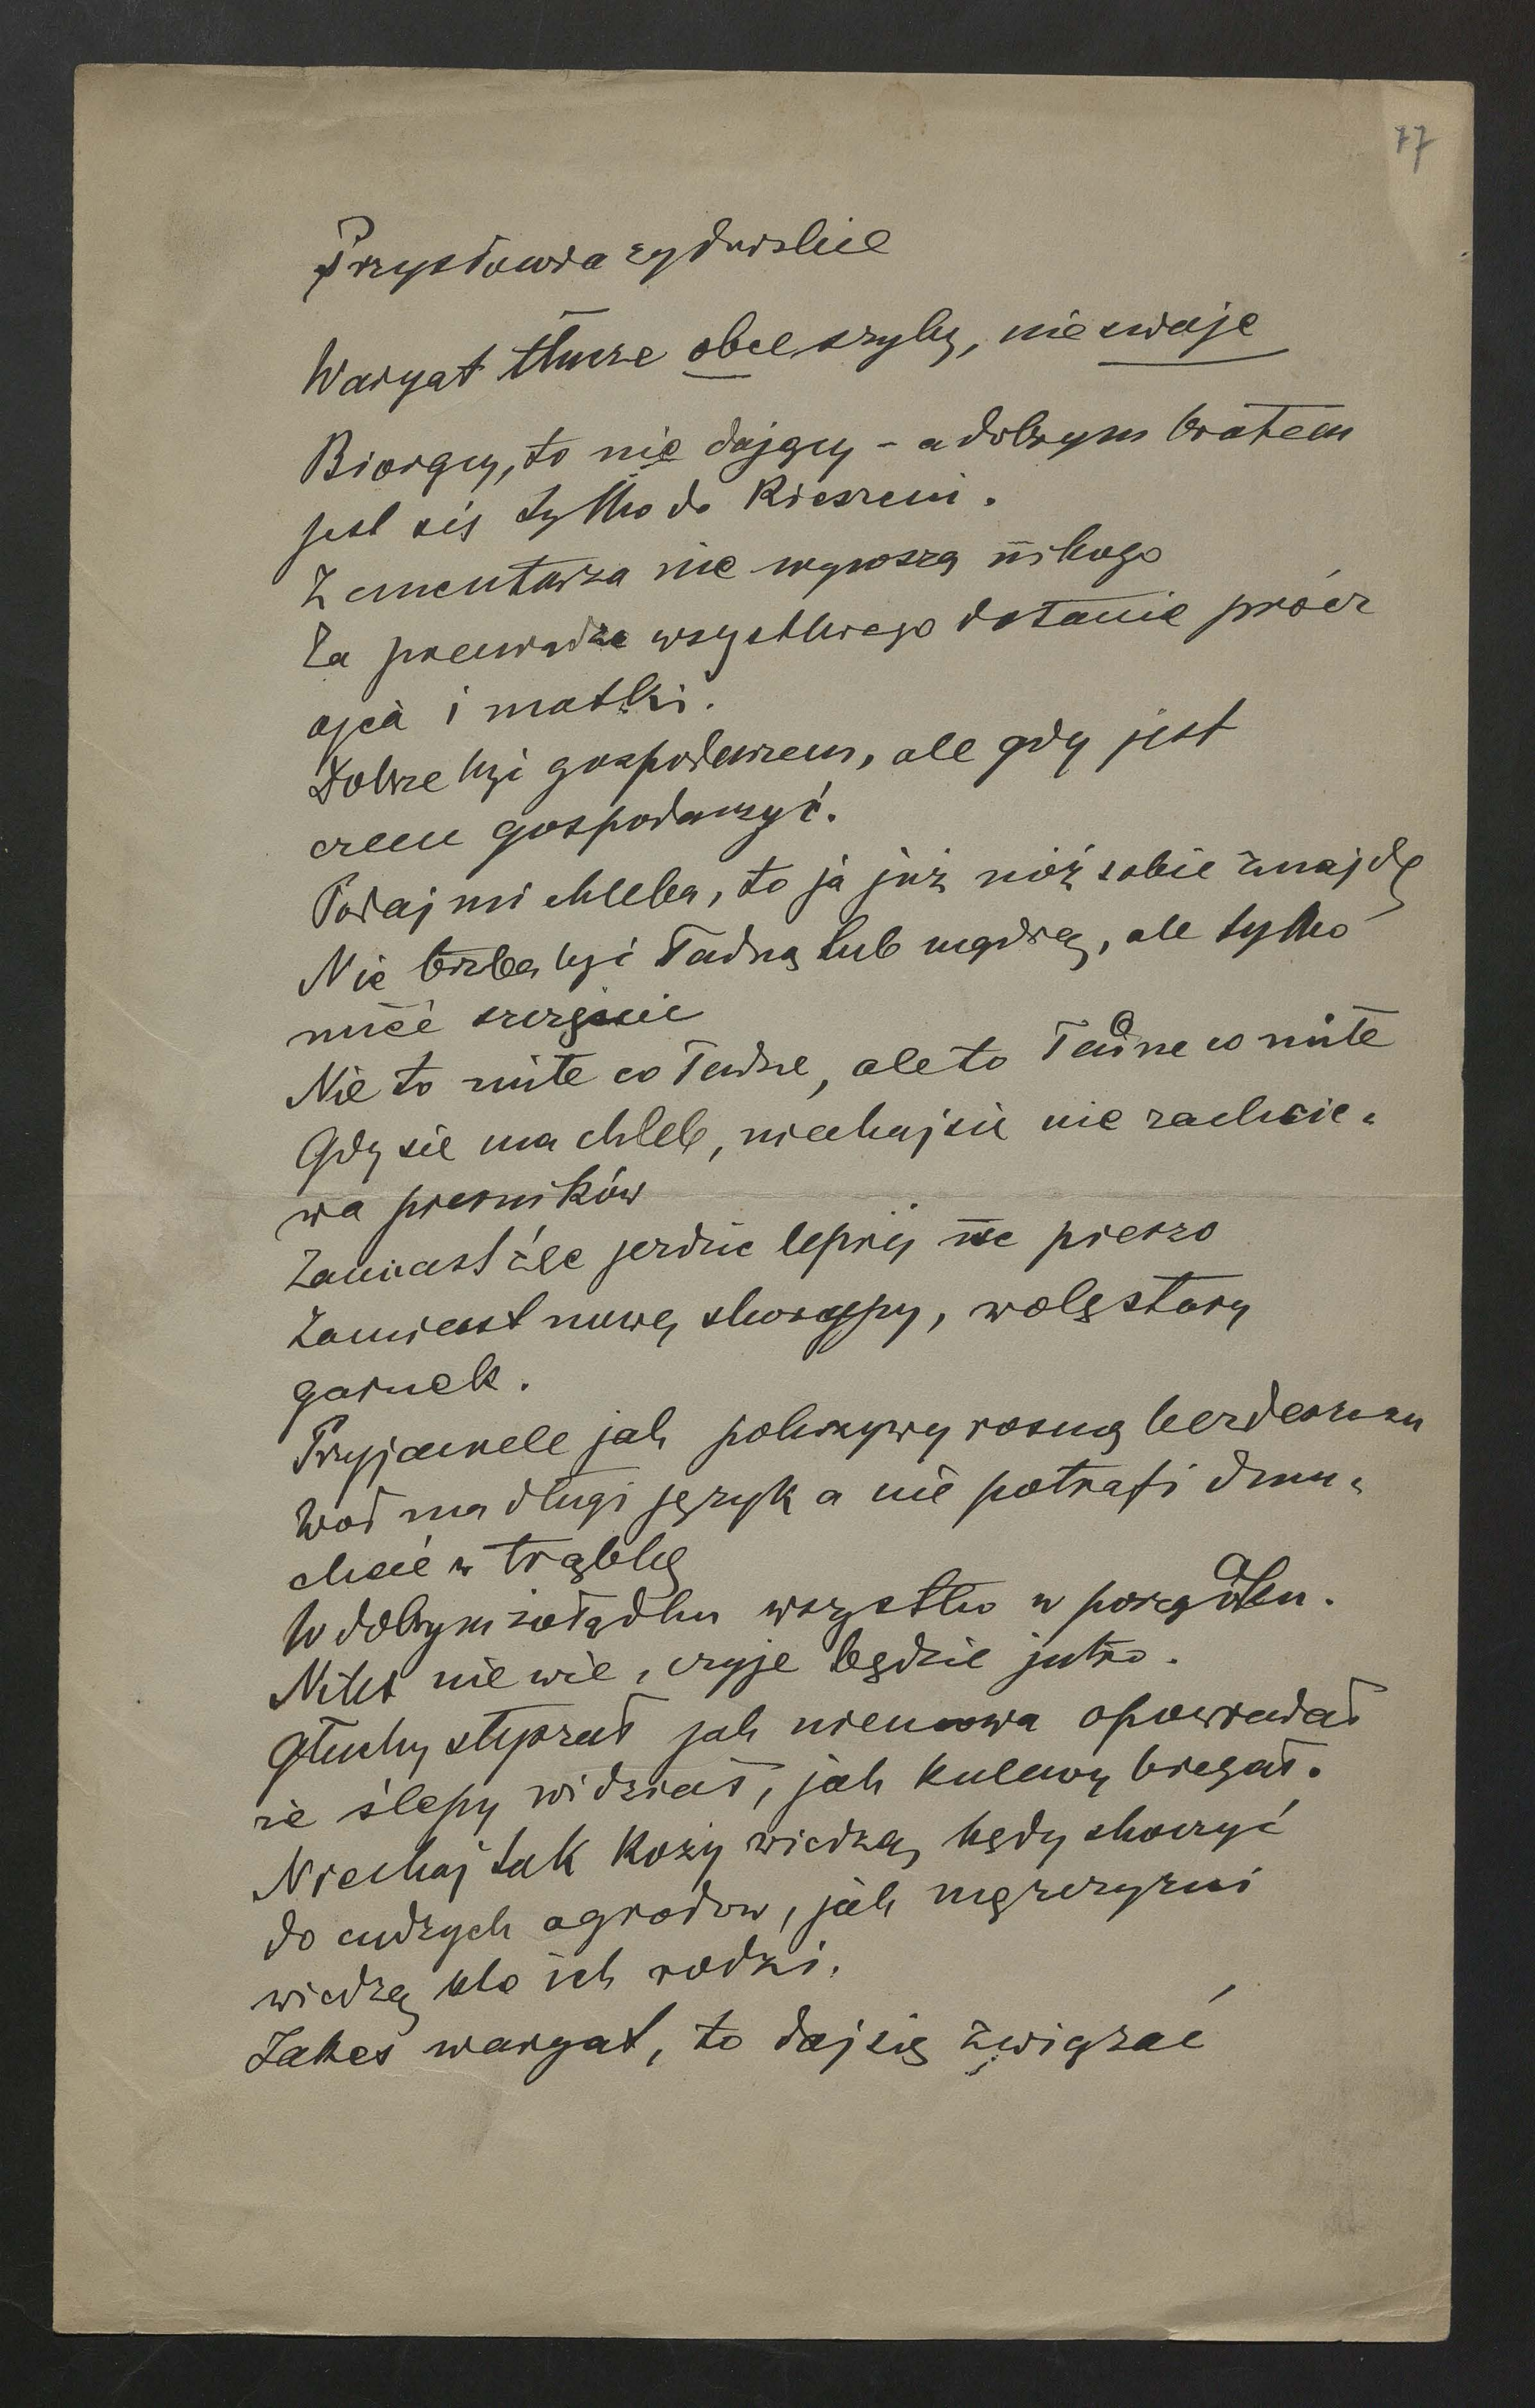 77
Przysłowia żydowskie
Waryat tłucze obce szyby, nie swoje
Biorący, to nie dający – a dobrym bratem
jest się tylko do kieszeni.
Z cmentarza nie wynoszą nikogo
Za pieniądze wszystkiego dostanie prócz
ojca i matki.
Dobrze być gospodarzem, ale gdy jest
czem gospodarzyć.
Podaj mi chleba, to ja już nóż sobie znajdę
Nie trzeba być ładną lub mądrą, ale tylko
mieć szczęście
Nie to miłe co ładne, ale to ładne co miłe
Gdy się ma chleb, niechaj się nie zachcie-
wa pierników
Zamiast źle jeździć lepiej iść pieszo
Zamiast nowej skorupy, wolę stary
garnek.
Przyjaciele jak pokrzywy rosną bez deszczu
Wół ma długi język a nie potrafi dmu-
chać w trąbkę
W dobrym żołądku wszystko w porządku.
Nikt nie wie, czyje będzie jutro.
Głuchy słyszał jak niemowa opowiadał
że ślepy widział, jak kulawy biegał.
Niechaj tak kozy wiedzą, kędy skoczyć
do cudzych ogrodów, jak mężczyzni
wiedzą kto ich rodzi.
Żakeś waryat, to daj się związać